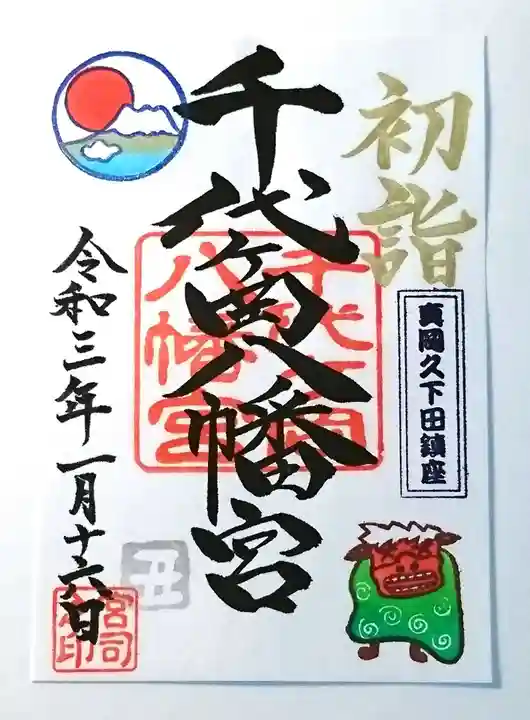 初詣
真岡久下田鎮座
千代ヶ岡八幡宮
千代ヶ岡
八幡宮
令和三年一月十六日
丑
宮司
之印